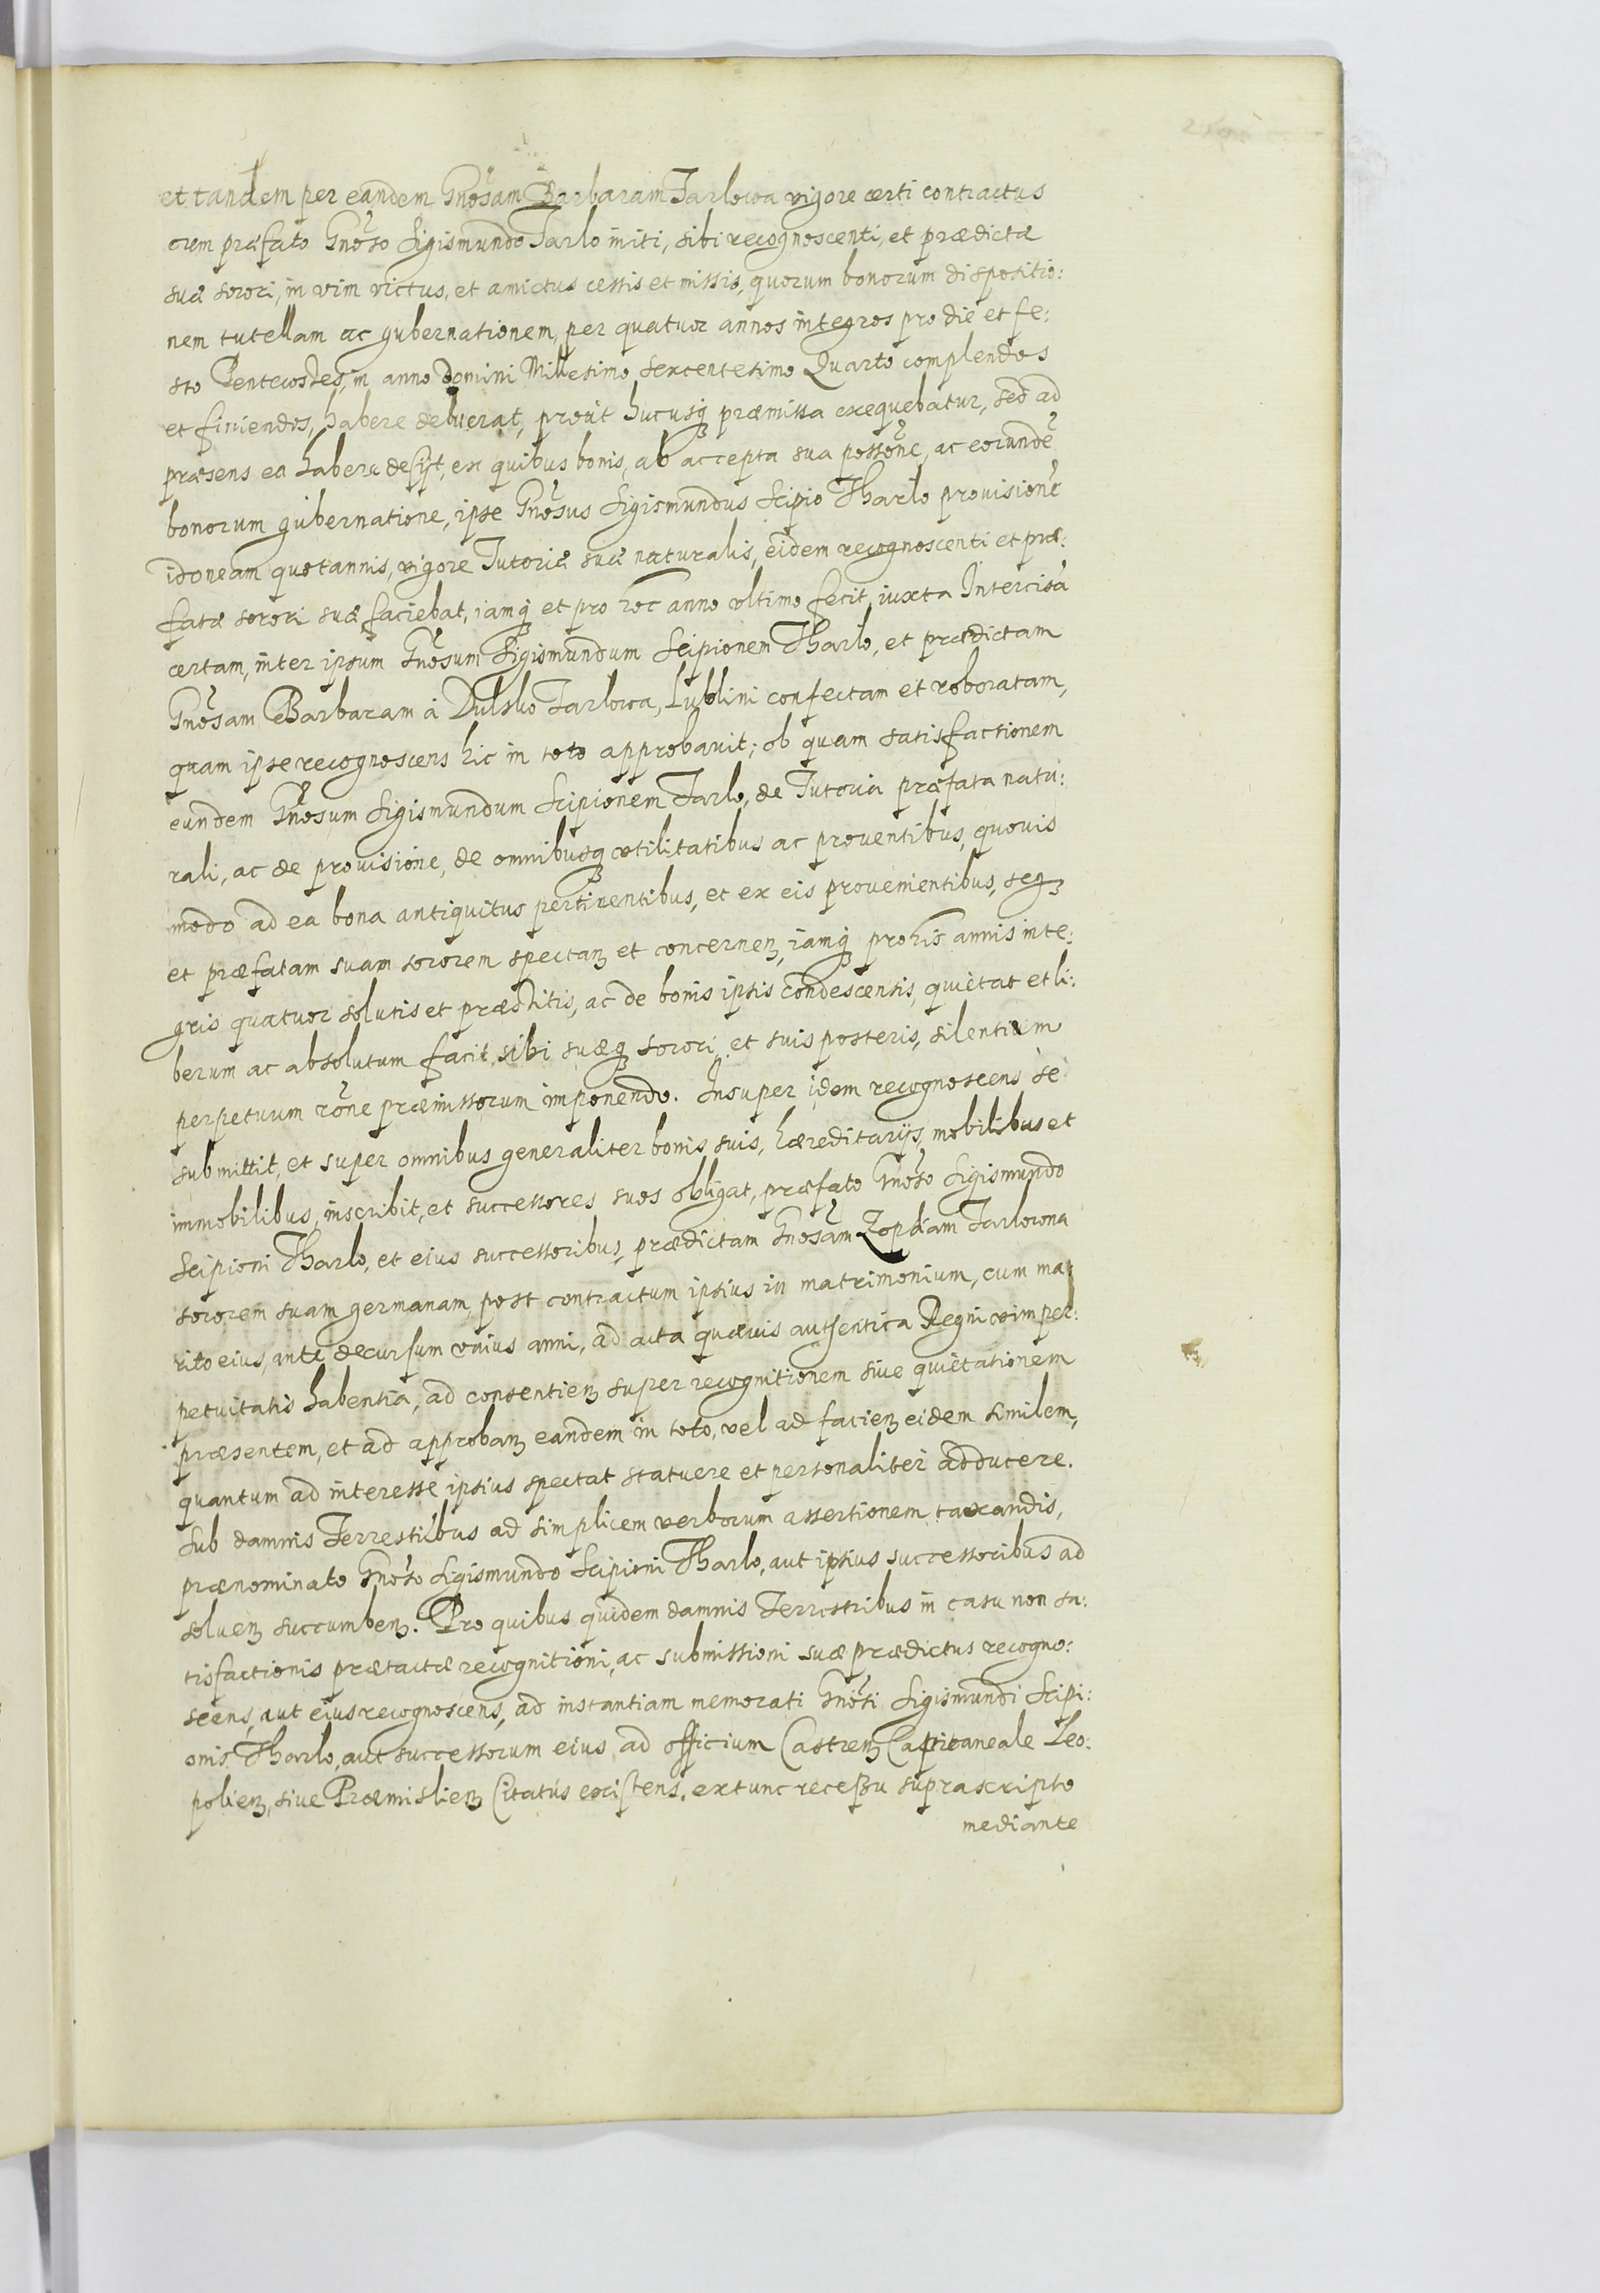 et tandem per eandem Gnõsam Barbaram Tarlowa vigore certi contractus
cum præfato Gnõso Sigismundo Tarlo initi, sibi recognoscenti, et prædictæ
suæ sorori, in vim victus, et amictus cessis et missis, quorum bonorum dispositio:
nem tutellam ac gubernationem, per quatuor annos integros pro die et fe:
sto Pentecostes, in anno Domini Millesimo sexcentesimo Quarto complendos
et finiendos, habere debuerat, prout hucusq₃ præmissa exequebatur, sed ad
præsens ea habere desijt, ex quibus bonis, ab accepta sua possõne, ac eorundẽ
bonorum gubernatione, ipse Gnõsus Sigismundus Scipio Tharlo provisionẽ
idoneam quotannis, vigore Tutoriæ suæ naturalis, eidem recognoscenti et præ:
fatæ sorori suæ faciebat, iamq₃ et pro hoc anno ultimo fecit, iuxta Intercisã
certam, inter ipsum Gnõsum Sigismundum Scipionem Tharlo, et prædictam
Gnõsam Barbaram à Dulsko Tarlowa, Lublini confectam et roboratam,
quam ipse recognoscens hic in toto approbavit; ob quam satisfactionem
eundem Gnõsum Sigismundum Scipionem Tarlo, de Tutoria præfata natu:
rali, ac de provisione, de omnibusq₃ utilitatibus ac proventibus, quovis
modo ad ea bona antiquitus pertinentibus, et ex eis provenientibus, seq₃
et præfatam suam sororem spectan₃ et concernen₃, iamq₃ pro his annis inte:
gris quatuor solutis et præstitis, ac de bonis ipsis condescensis, quietat et li:
berum ac absolutum facit, sibi suæq₃ sorori et suis posteris, silentium
perpetuum rõne præmissorum imponendo. Insuper idem recognoscens se
submittit, et super omnibus generaliter bonis suis, hæreditarijs, mobilibus et
immobilibus, inscribit, et successores suos obligat, præfato Gnõso Sigismundo
Scipioni Tharlo, et eius successoribus, prædictam Gnõsam Zophiam Tarlowna
sororem suam germanam, post contractum ipsius in matrimonium, cum ma
rito eius, ante decursum unius anni, ad acta quævis authentica Regni vim per:
petuitatis habentia, ad consentien₃ super recognitionem sive quietationem
præsentem, et ad approban₃ eandem in toto, vel ad facien₃ eidem similem,
quantum ad interesse ipsius spectat statuere et personaliter adducere.
Sub damnis Terrestribus ad simplicem verborum assertionem taxandis,
prænominato Gnõso Sigismundo Scipioni Tharlo, aut ipsius successoribus ad
solven₃ succumben₃. Pro quibus quidem damnis Terrestribus in casu non sa:
tisfactionis prætactæ recognitioni, ac submissioni suæ prædictus recogno:
scens, aut eius recognoscens, ad instantiam memorati Gnõsi Sigismundi Scipi:
onis Tharlo, aut successorum eius, ad officium Castren₃ Capitaneale Leo:
polien₃, sive Præmislien₃ Citatus existens, extunc recessu suprascripto
mediante